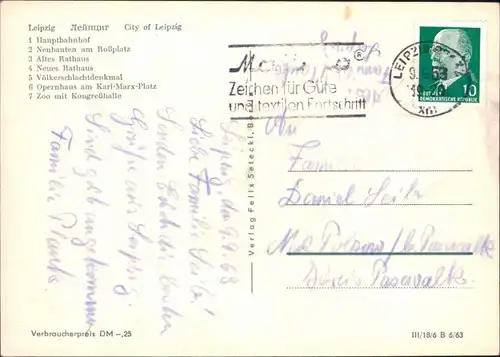 Leipzig Лейпциг City of Leipzig
1 Hauptbahnhof
2 Neubauten am Roßplatz
3 Altes Rathaus
4 Neues Rathaus
5 Völkerschlachtdenkmal
6 Opernhaus am Karl-Marx-Platz
7 Zoo mit Kongreßhalle
Zeichen für Güte
und textilen Fortschritt
LEIPZIG
DEUTSCHE
DEMOKRATISCHE REPUBLIK
10
Leipzig, den
Liebe Familie Seils!
Senden Euch die besten
Grüße aus Leipzig
Sind gut angekommen
Familie
Verlag Felix Setecki, Be
An
Familie
Daniel Seils
Pasewalk
Verbraucherpreis DM -,25
III/18/6 B 6/63